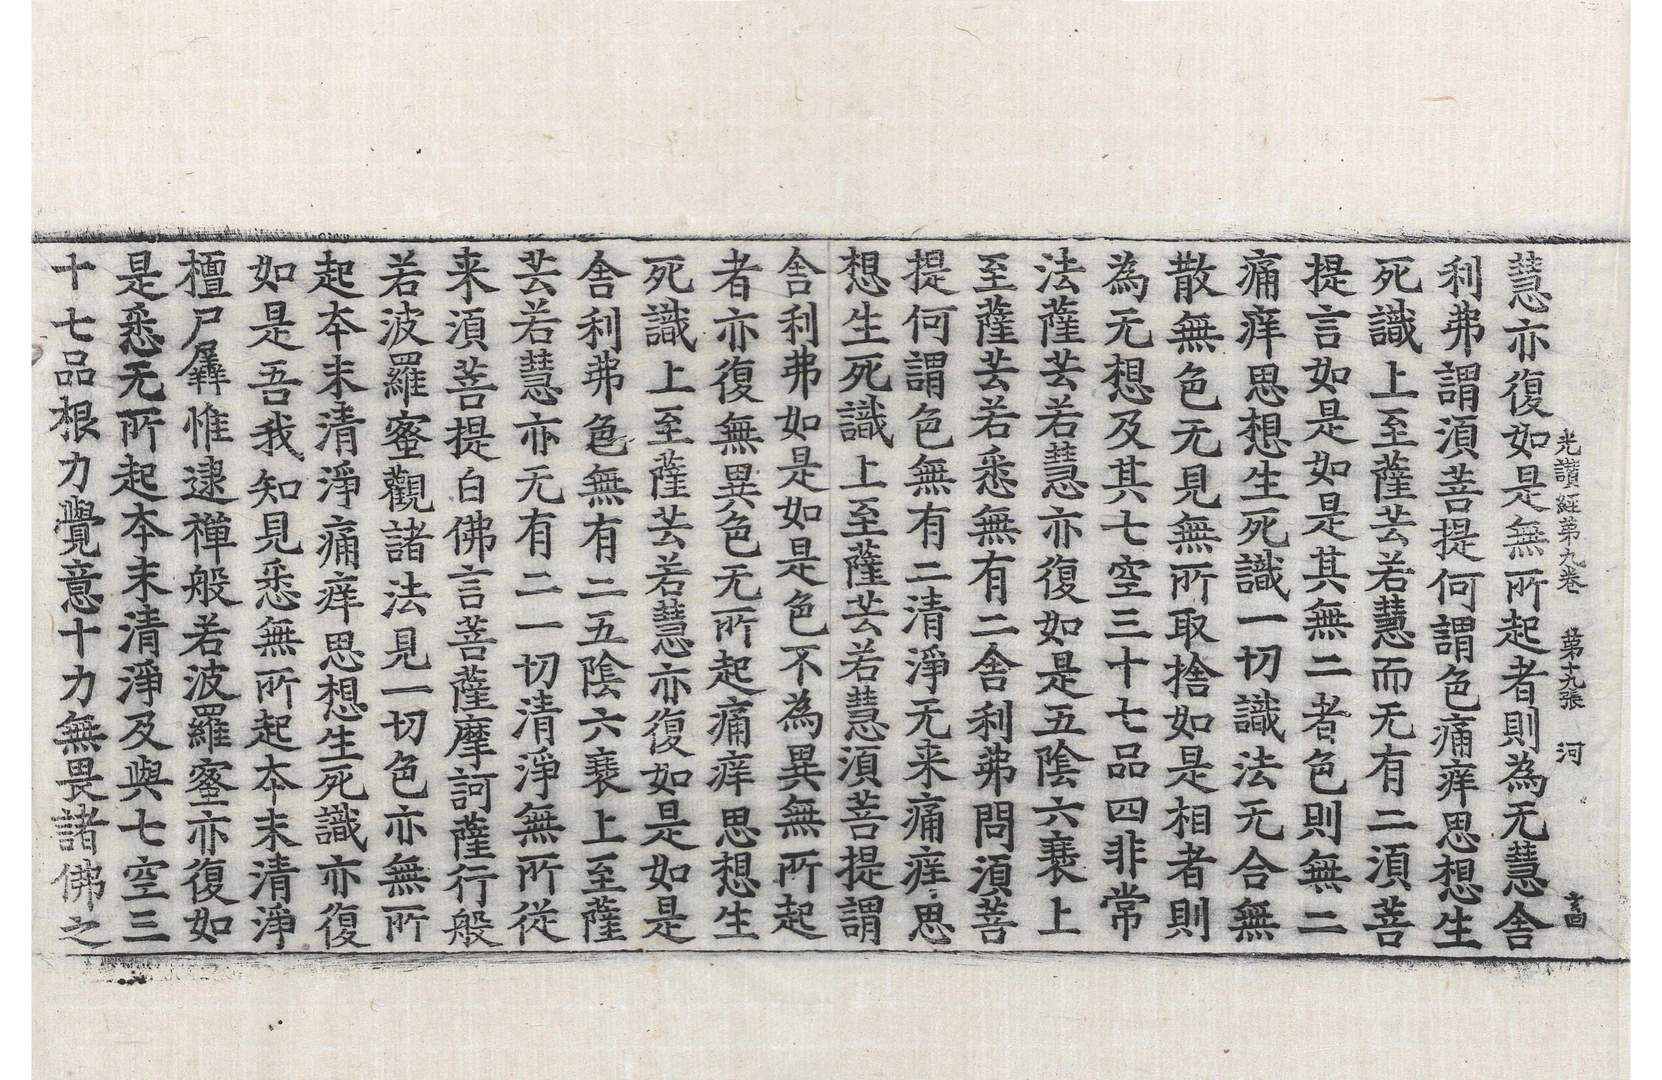 光讚經第九卷 第十九張 河
慧亦復如是無所起者則為无慧舍
利弗謂須菩提何謂色痛痒思想生
死識上至薩芸若慧而无有二須菩
提言如是如是其無二者色則無二
痛痒思想生死識一切識法无合無
散無色无見無所取捨如是相者則
為无想及其七空三十七品四非常
法薩芸若慧亦復如是五陰六衰上
至薩芸若悉無有二舍利弗問須菩
提何謂色無有二清淨无来痛痒思
想生死識上至薩芸若慧須菩提謂
舍利弗如是如是色不為異無所起
者亦復無異色无所起痛痒思想生
死識上至薩芸若慧亦復如是如是
舍利弗色無有二五陰六衰上至薩
芸若慧亦无有二一切清淨無所從
来須菩提白佛言菩薩摩訶薩行般
若波羅蜜觀諸法見一切色亦無所
起夲末清淨痛痒思想生死識亦復
如是吾我知見悉無所起夲末清淨
檀尸羼惟逮禪般若波羅蜜亦復如
是悉无所起夲末清淨及與七空三
十七品根力覺意十力無畏諸佛之